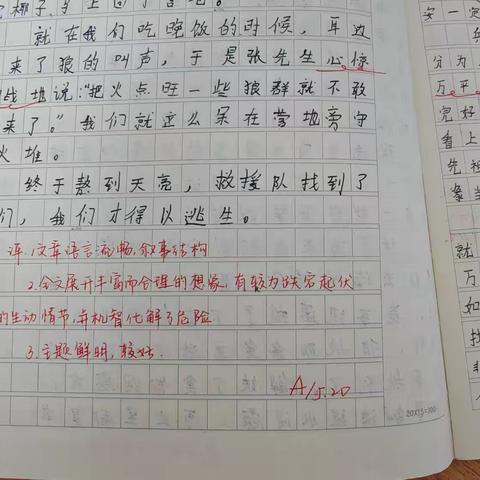 就在我们吃晚饭的时候，耳边
来了狼的叫声，于是张先生心惊
战地说："把火点旺一些狼群就不敢
来了。"我们就这么呆在营地旁守
火堆。
终于熬到天亮，救援队找到了
们，我们才得以逃生。
评：1.文章语言流畅，叙事结构
2.全文展开丰富而合理的想象，有较为跌宕起伏
的生动情节，并机智化解了危险
3.主题鲜明，较好.
A/5.20
20×15=300
安一定
分为
万平
完好
看上
先祖
像当
就
万
如
找